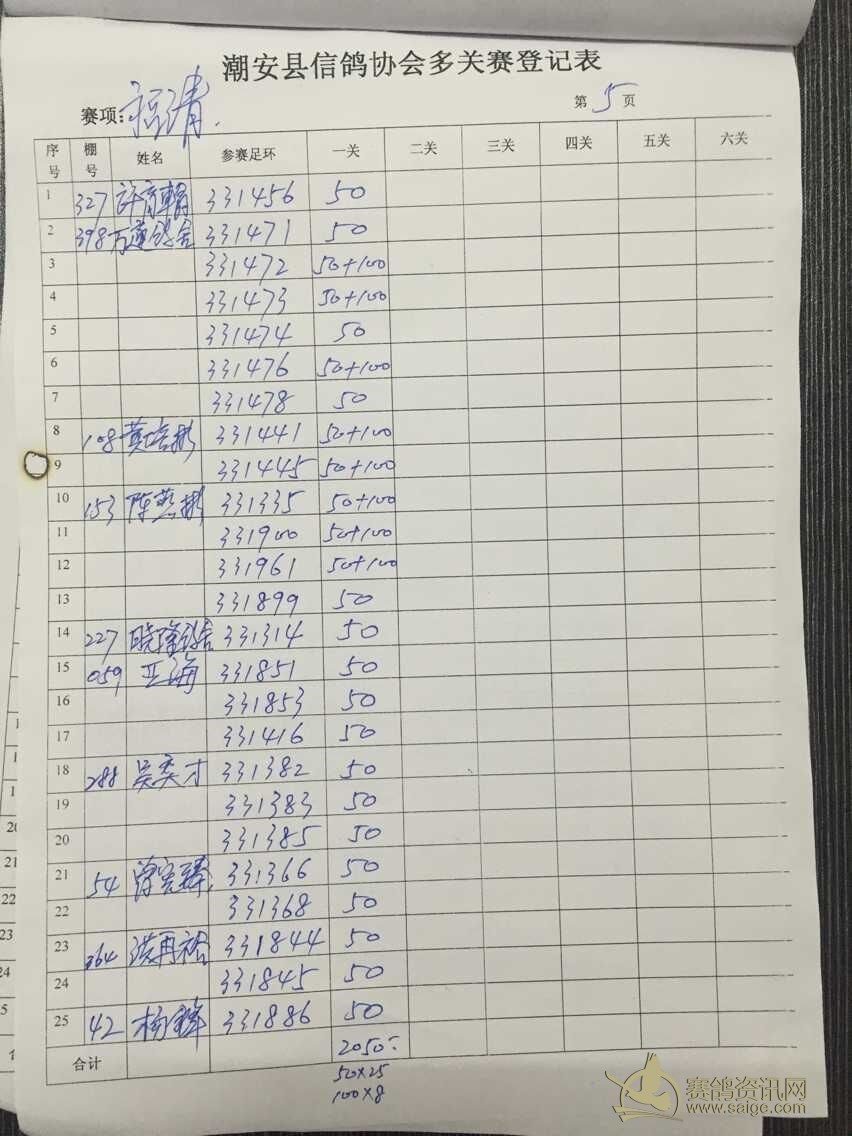 潮安县信鸽协会多关赛登记表
赛项:福清. 第 5 页
序号 棚号 姓名 参赛足环 一关 二关 三关 四关 五关 六关
1 327 331456 50
2 398 万莲鸽舍 331471 50
3 331472 50+100
4 331473 50+100
5 331474 50
6 331476 50+100
7 331478 50
8 108 黄培彬 331441 50+100
9 331445 50+100
10 153 331335 50+100
11 331900 50+100
12 331961 50+100
13 331899 50
14 227 晓隆鸽舍 331314 50
15 059 亚海 331851 50
16 331853 50
17 331416 50
18 288 吴奕才 331382 50
19 331383 50
20 331385 50
21 54 331366 50
22 331368 50
23 264 洪再裕 331844 50
24 331845 50
25 42 331886 50
合计 2050
50×25
100×8
20
21
22
23
24
赛鸽资讯网
www.saige.com